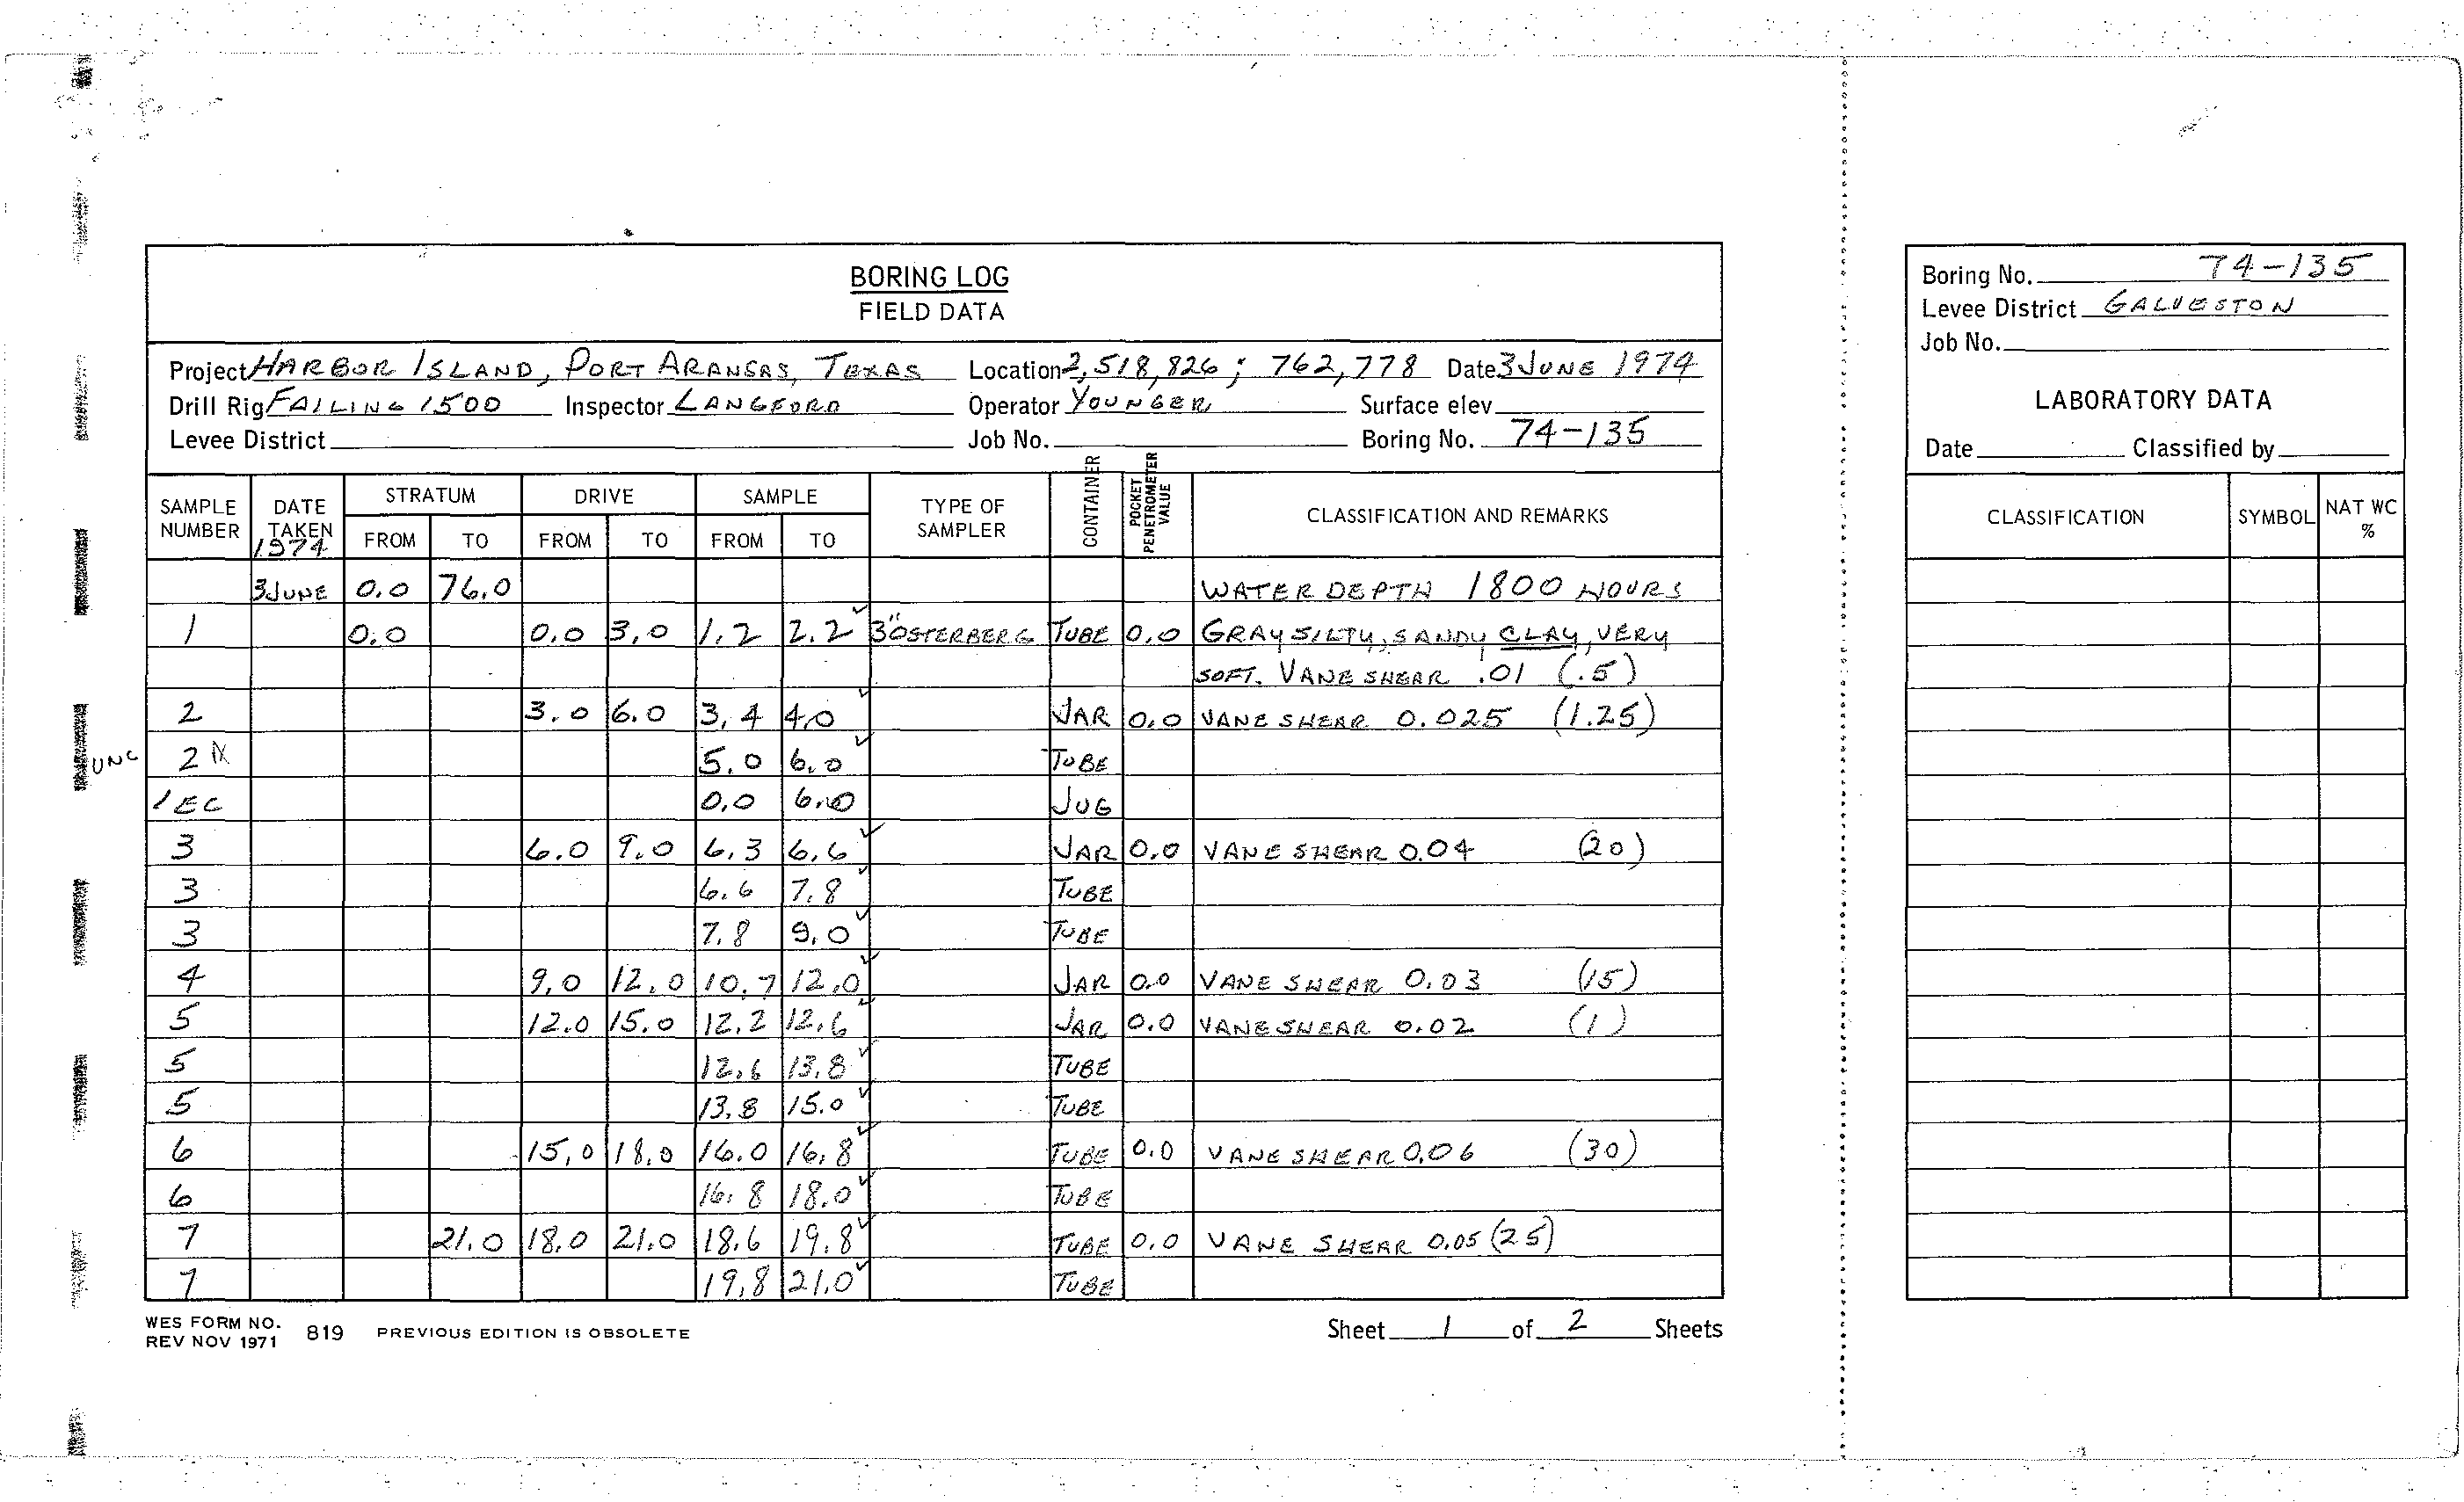 BORING LOG
FIELD DATA
Project HARBOR ISLAND, PORT ARANSAS, TEXAS Location 2,518,826 ; 762,778 Date 3 JUNE 1974
Drill Rig FAILING 1500 Inspector LANGFORD Operator YOUNGER Surface elev.
Levee District Job No. Boring No. 74-135
SAMPLE NUMBER DATE TAKEN 1974 STRATUM FROM TO DRIVE FROM TO SAMPLE FROM TO TYPE OF SAMPLER CONTAINER POCKET PENETROMETER VALUE CLASSIFICATION AND REMARKS
3 JUNE 0.0 76.0 WATER DEPTH 1800 HOURS
1 0.0 0.0 3.0 1.2 2.2 ✓ 3" OSTERBERG TUBE 0.0 GRAY SILTY, SANDY CLAY, VERY
SOFT. VANE SHEAR .01 (.5)
2 3.0 6.0 3.4 4.0 ✓ JAR 0.0 VANE SHEAR 0.025 (1.25)
UNC 2 5.0 6.0 ✓ TUBE
1 EC 0.0 6.0 JUG
3 6.0 9.0 6.3 6.6 ✓ JAR 0.0 VANE SHEAR 0.04 (20)
3 6.6 7.8 ✓ TUBE
3 7.8 9.0 ✓ TUBE
4 9.0 12.0 10.7 12.0 ✓ JAR 0.0 VANE SHEAR 0.03 (15)
5 12.0 15.0 12.2 12.6 ✓ JAR 0.0 VANE SHEAR 0.02 (1)
5 12.6 13.8 ✓ TUBE
5 13.8 15.0 ✓ TUBE
6 15.0 18.0 16.0 16.8 ✓ TUBE 0.0 VANE SHEAR 0.06 (30)
6 16.8 18.0 ✓ TUBE
7 21.0 18.0 21.0 18.6 19.8 ✓ TUBE 0.0 VANE SHEAR 0.05 (25)
7 19.8 21.0 ✓ TUBE
WES FORM NO. 819 PREVIOUS EDITION IS OBSOLETE
REV NOV 1971
Sheet 1 of 2 Sheets
Boring No. 74-135
Levee District GALVESTON
Job No.
LABORATORY DATA
Date Classified by
CLASSIFICATION SYMBOL NAT WC %